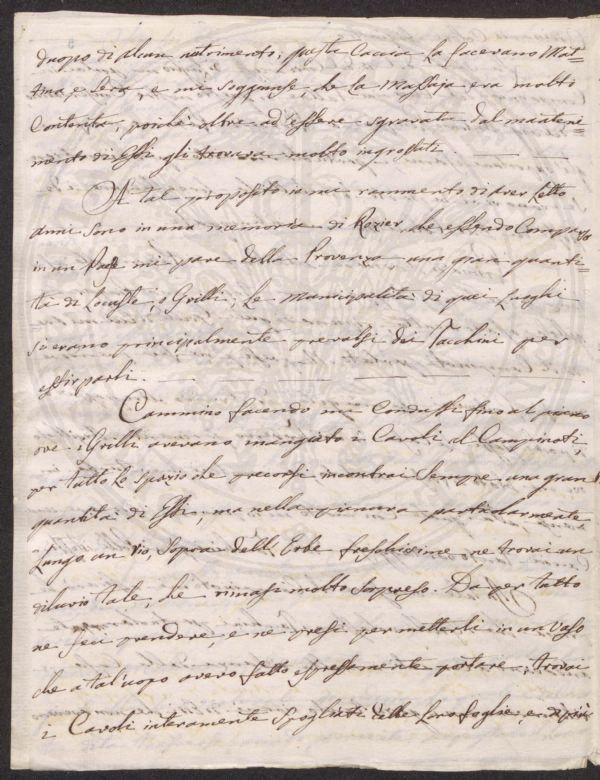 duopo di alcun nutrimento; questa Caccia la facevano Mat=
tina e Sera, e mi soggiunse che la Massaja era molto
Contenta, poiché oltre ad essere sgravata dal manteni=
mento di Essi gli trovava molto ingrossati.
A tal proposito io mi rammento di aver Letto
anni sono in una memoria di Rozier che essendo Comparse
in un Paese mi pare della Provenza una gran quanti=
tà di Locuste, o Grilli; le Municipalità di quei Luoghi
si erano principalmente prevalsi dei Tacchini per
estirparli.
Cammino facendo mi Condussi fino al piano
ove i Grilli avevano mangiato i Cavoli al Campinoti,
per tutto lo spazio che precorsi incontrai Sempre una gran
quantità di Essi, ma nella pianura particolarmente
Lungo un rio, Sopra dell'Erbe freschissime ne trovai un
diluvio tale, che rimasi molto Sorpreso. Da per tutto
ne feci prendere, e ne presi per metterli in un Vaso
che a tal'uopo avevo fatto espressamente portare; trovai
i Cavoli interamente Spogliati delle Loro foglie, e di più